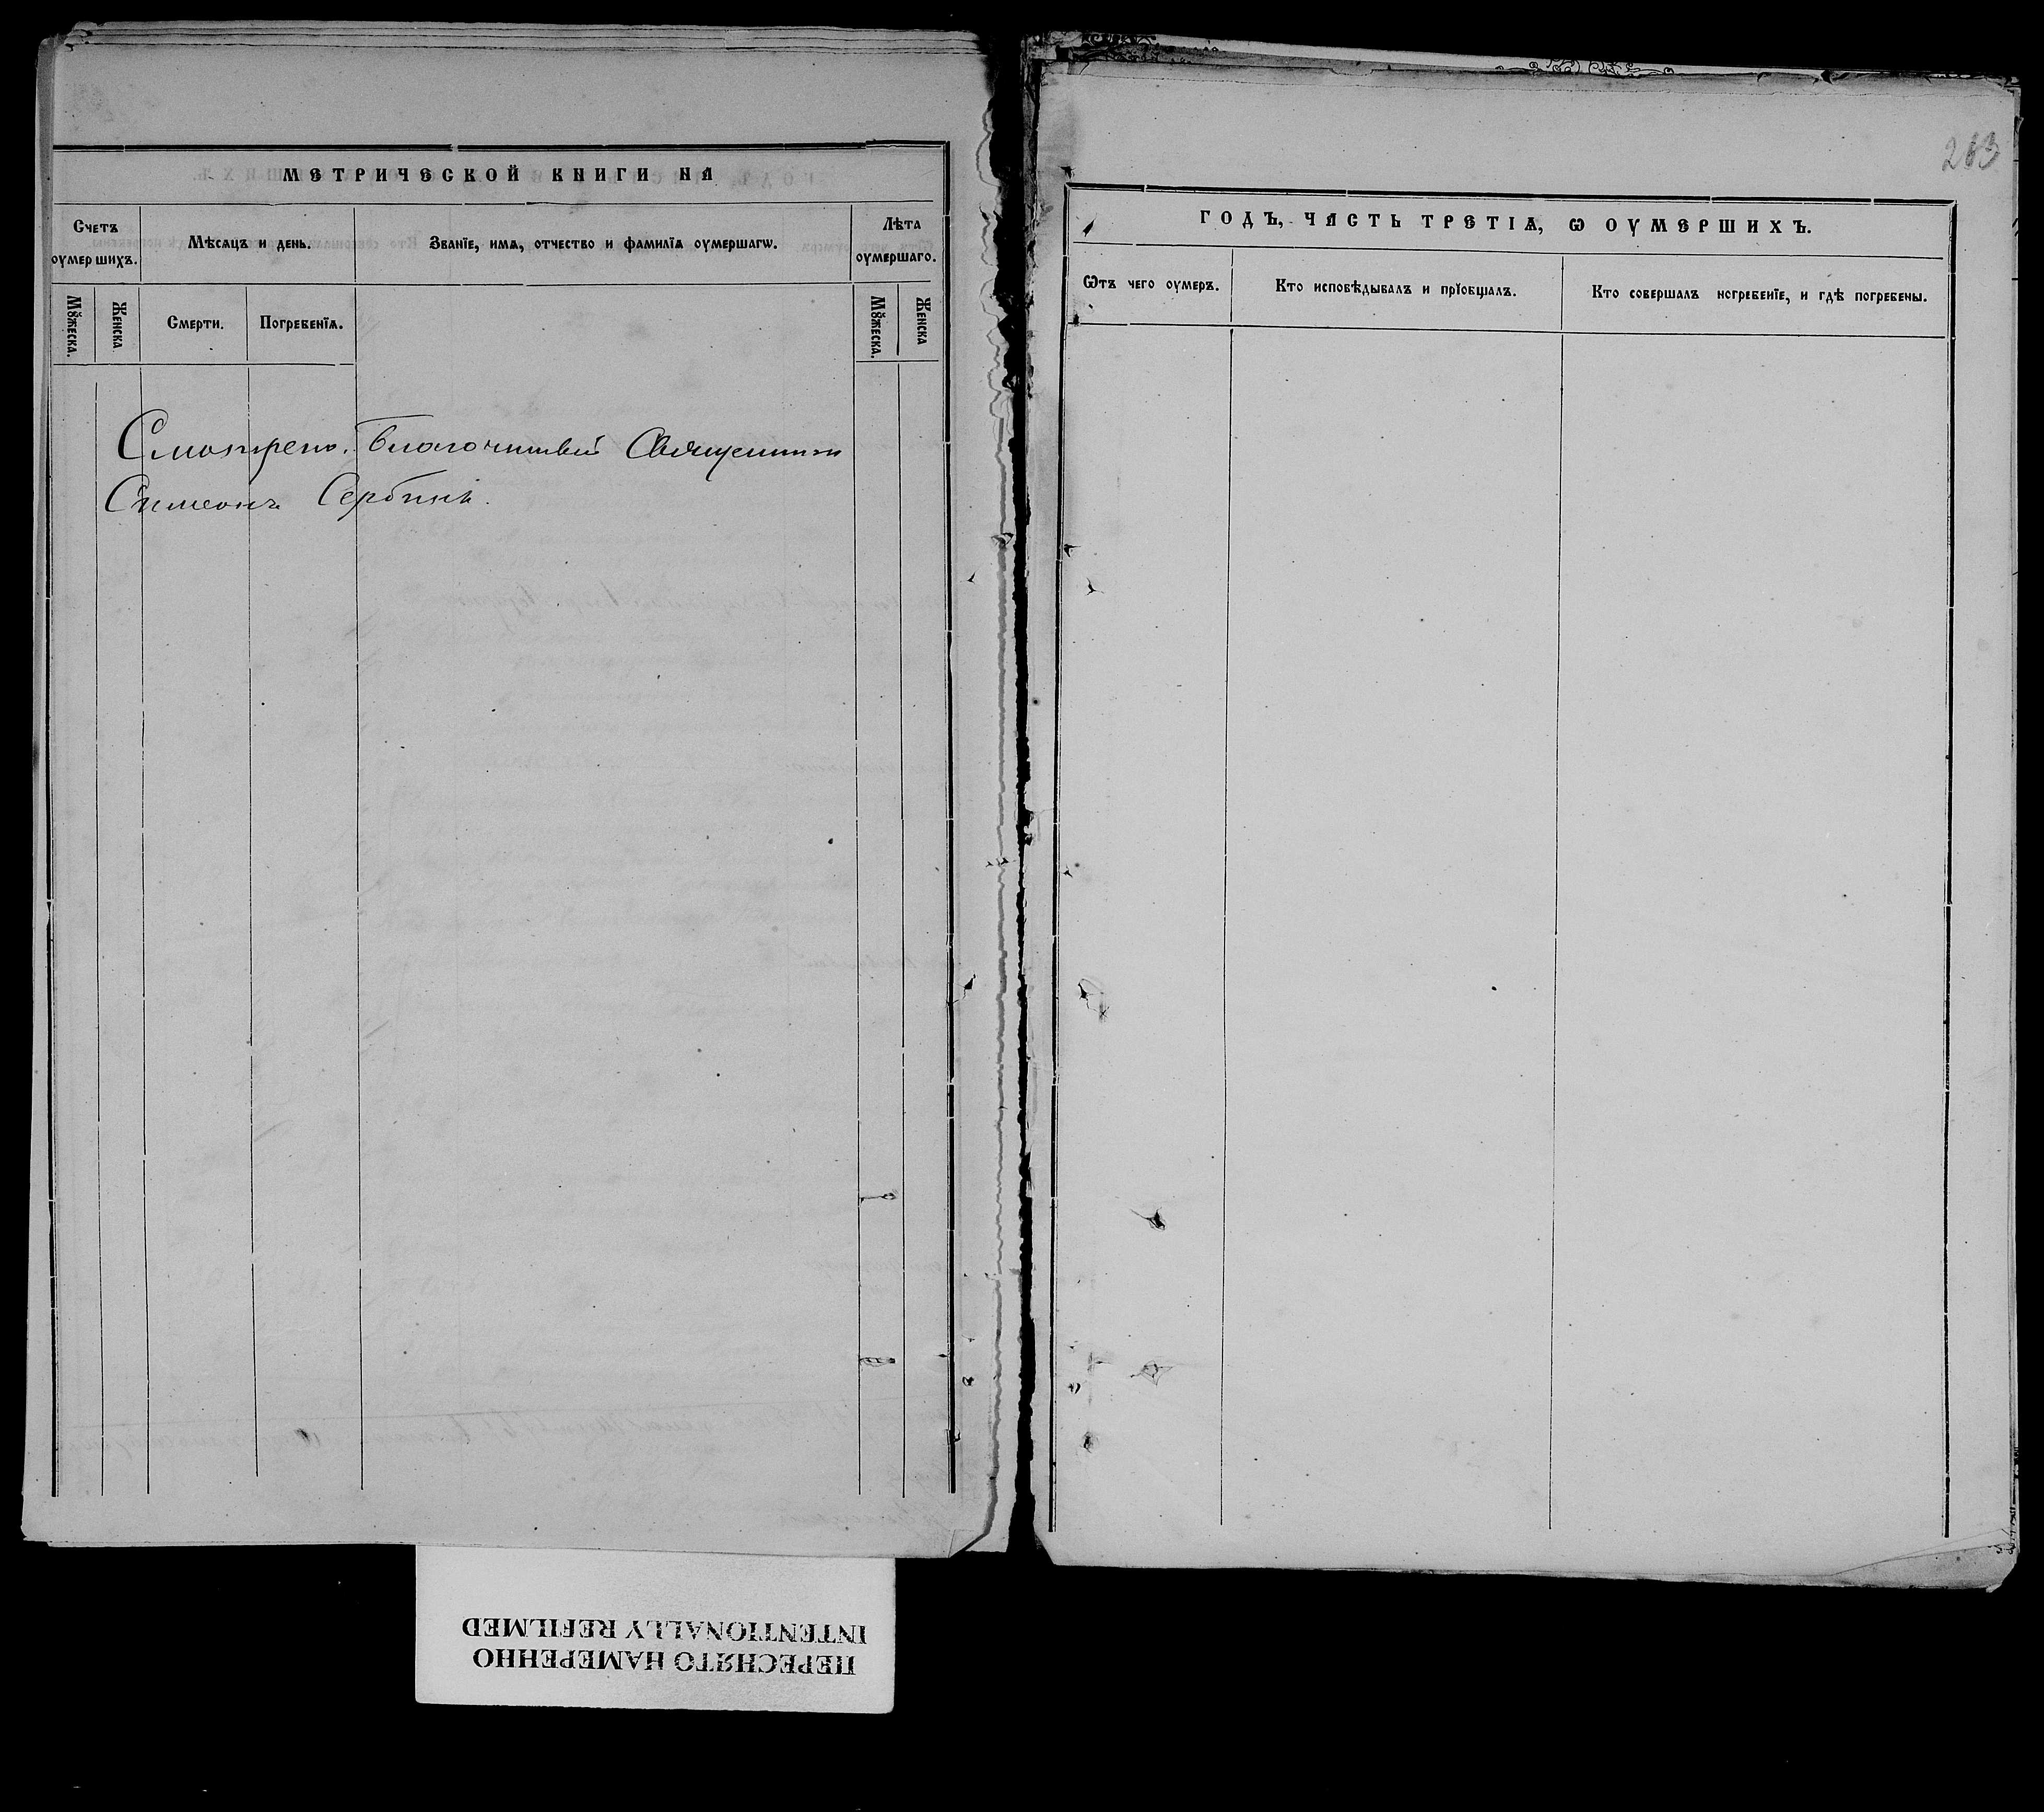 МЕТРИЧЕСКОЙ КНИГИ НА
Счетъ оумершихъ.
Мѣсяцъ и день.
Званїе, имѧ, отчество и фамилїѧ оумершагѡ.
Лѣта оумершаго.
Мꙋжеска.
Женска
Смерти.
Погребенїѧ.
Мꙋжеска.
Женска
Смотрено. Благочинный Священникъ
Симеонъ Сербинъ.
263
ГОДЪ, ЧАСТЬ ТРЕТІѦ, Ѡ ОУМЕРШИХЪ.
Ѿтъ чего оумеръ.
Кто исповѣдывалъ и прїобщалъ.
Кто совершалъ погребенїе, и гдѣ погребены.
ПЕРЕСНЯТО НАМЕРЕННО
INTENTIONALLY REFILMED